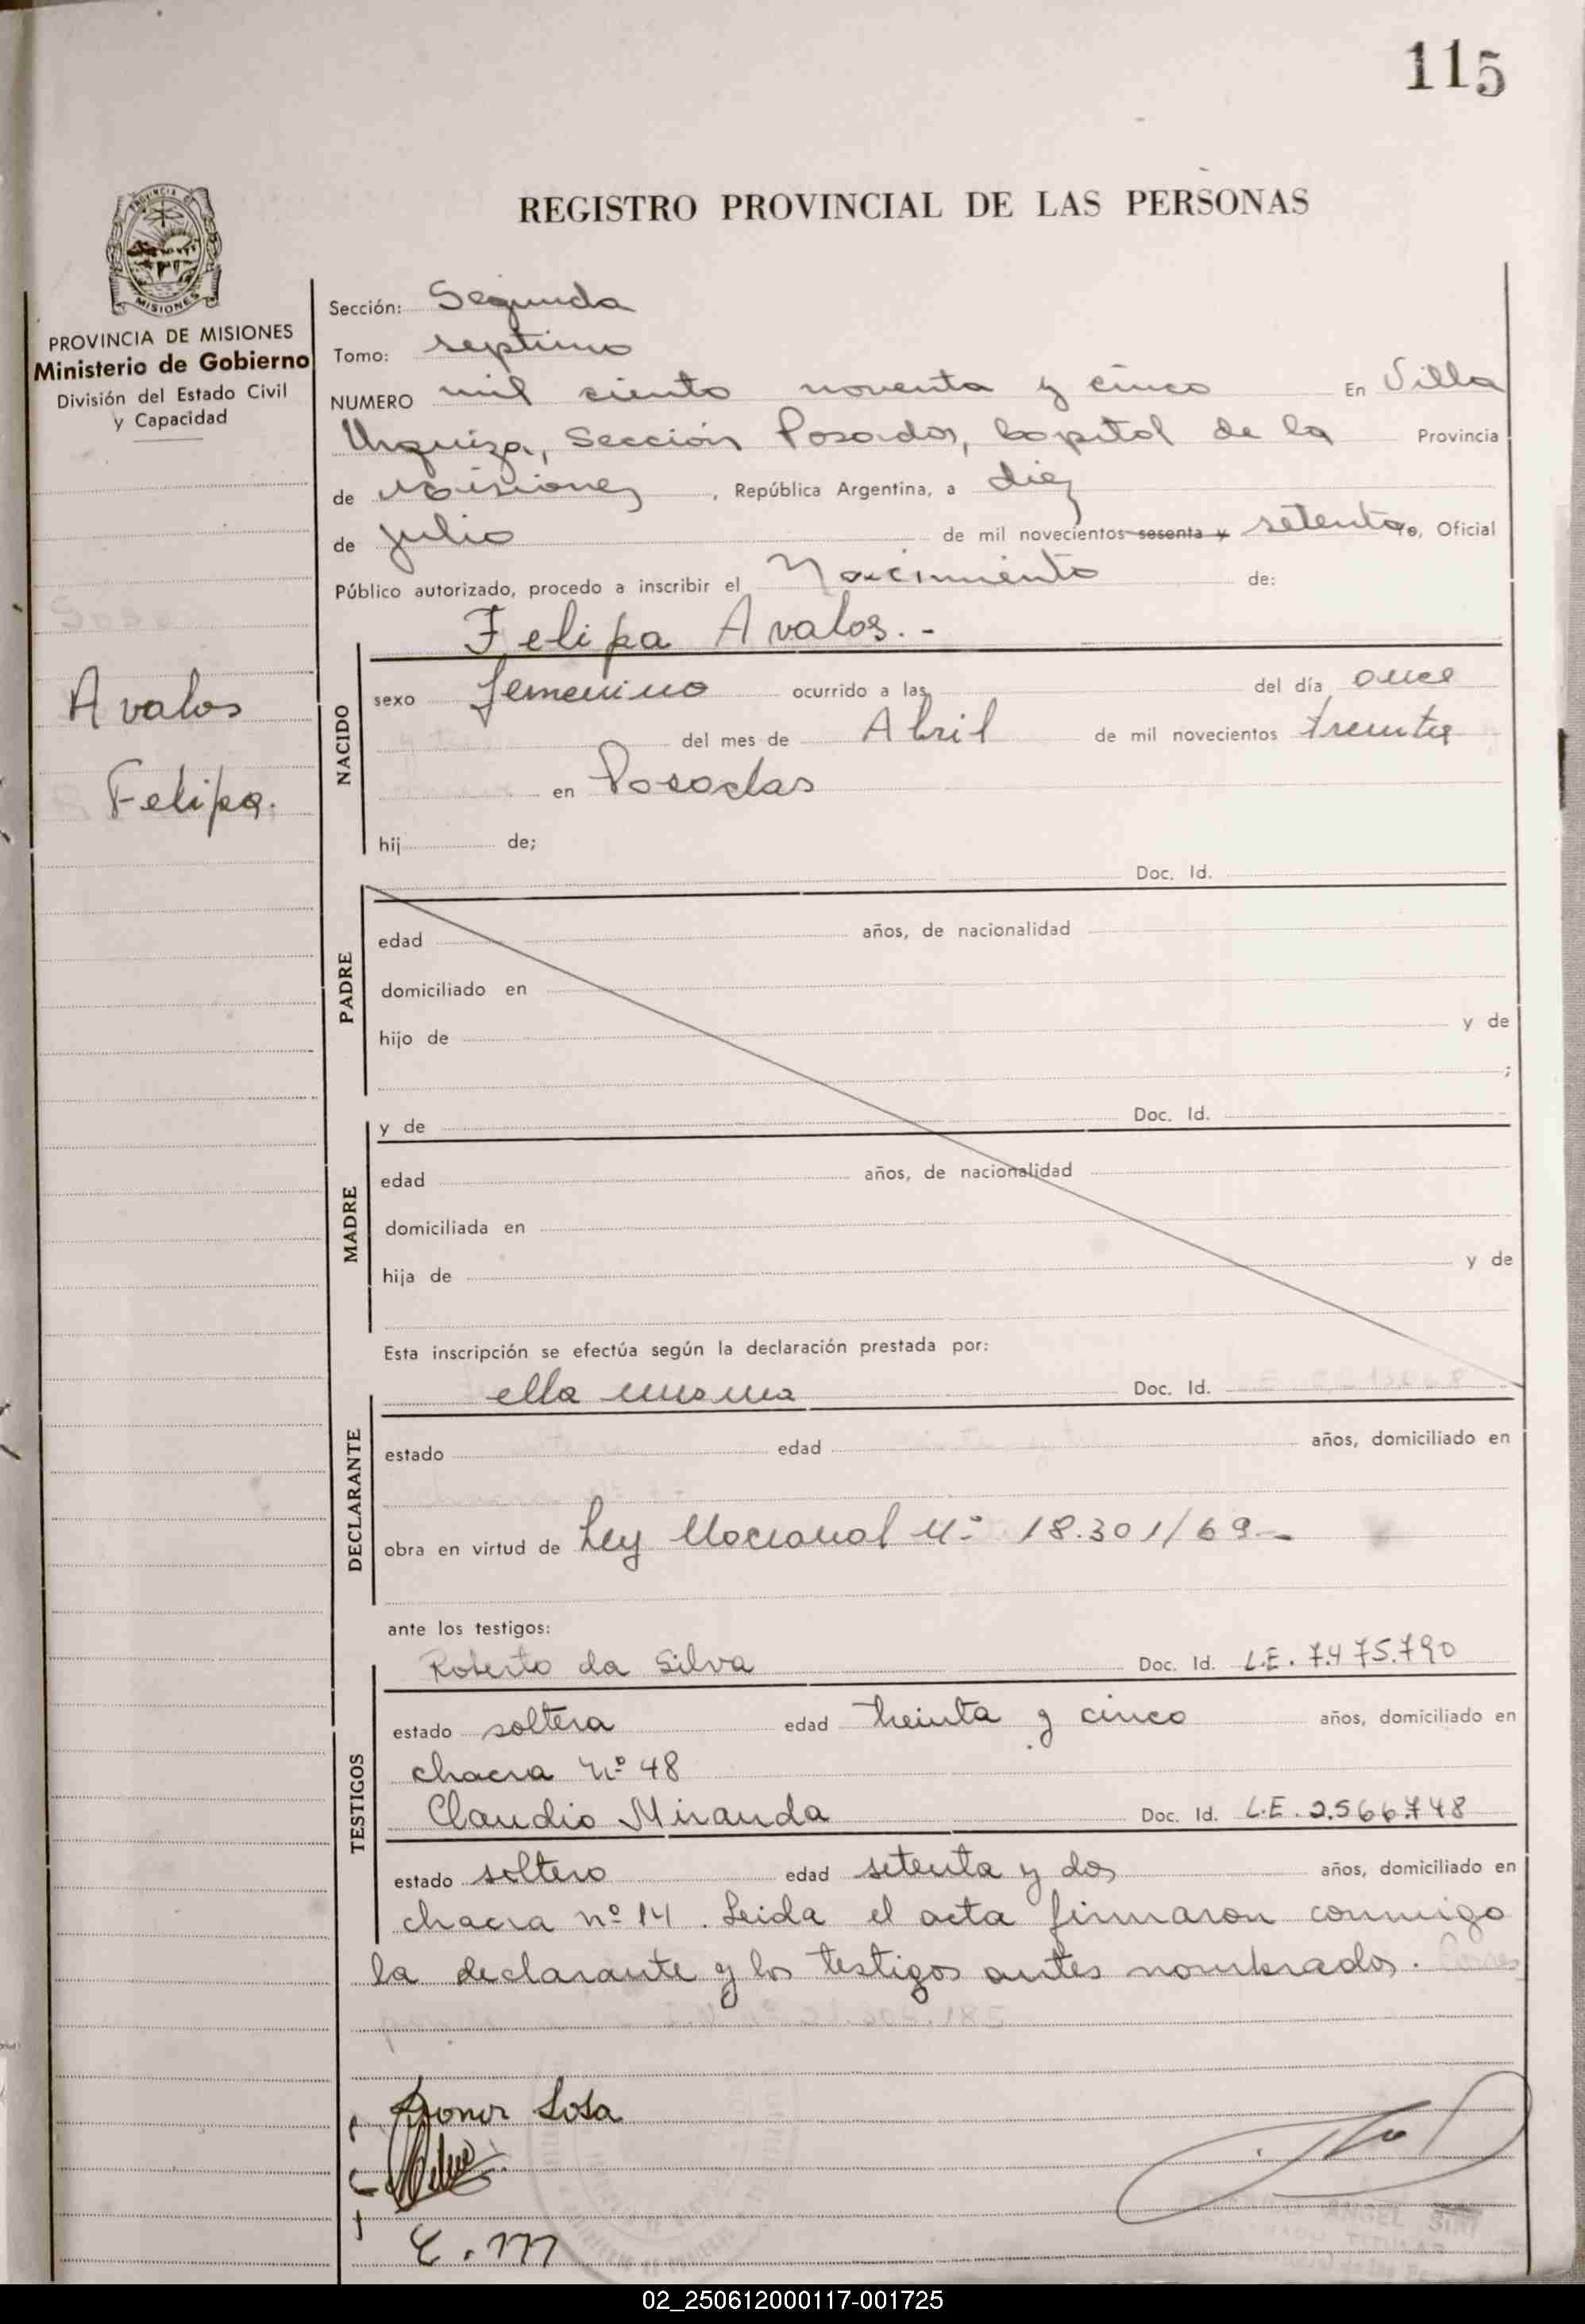 115
REGISTRO PROVINCIAL DE LAS PERSONAS
PROVINCIA
MISIONES
PROVINCIA DE MISIONES
Ministerio de Gobierno
División del Estado Civil
y Capacidad
Avalos
Felipa.
Sección: Segunda
Tomo: septimo
NUMERO mil ciento noventa y cinco En Villa
Urquiza, Sección Posadas, Capital de la Provincia
de Misiones, República Argentina, a diez
de julio de mil novecientos sesenta y setenta Yo, Oficial
Público autorizado, procedo a inscribir el Nacimiento de:
Felipa Avalos.-
NACIDO
sexo femenino ocurrido a las del día once
del mes de Abril de mil novecientos treinta
en Posadas
hij de;
Doc. Id.
PADRE
edad años, de nacionalidad
domiciliado en
hijo de y de
;
y de Doc. Id.
MADRE
edad años, de nacionalidad
domiciliada en
hija de y de
Esta inscripción se efectúa según la declaración prestada por:
ella misma Doc. Id.
DECLARANTE
estado edad años, domiciliado en
obra en virtud de Ley Nacional Nº 18.301/69.-
ante los testigos:
Roberto da Silva Doc. Id. L.E. 7.475.790
TESTIGOS
estado soltera edad treinta y cinco años, domiciliado en
chacra Nº 48
Claudio Miranda Doc. Id. L.E. 2.566.748
estado soltero edad setenta y dos años, domiciliado en
chacra nº 14. Leida el acta firmaron conmigo
la declarante y los testigos antes nombrados.
Sosa
ANGEL
TITULAR
02_250612000117-001725